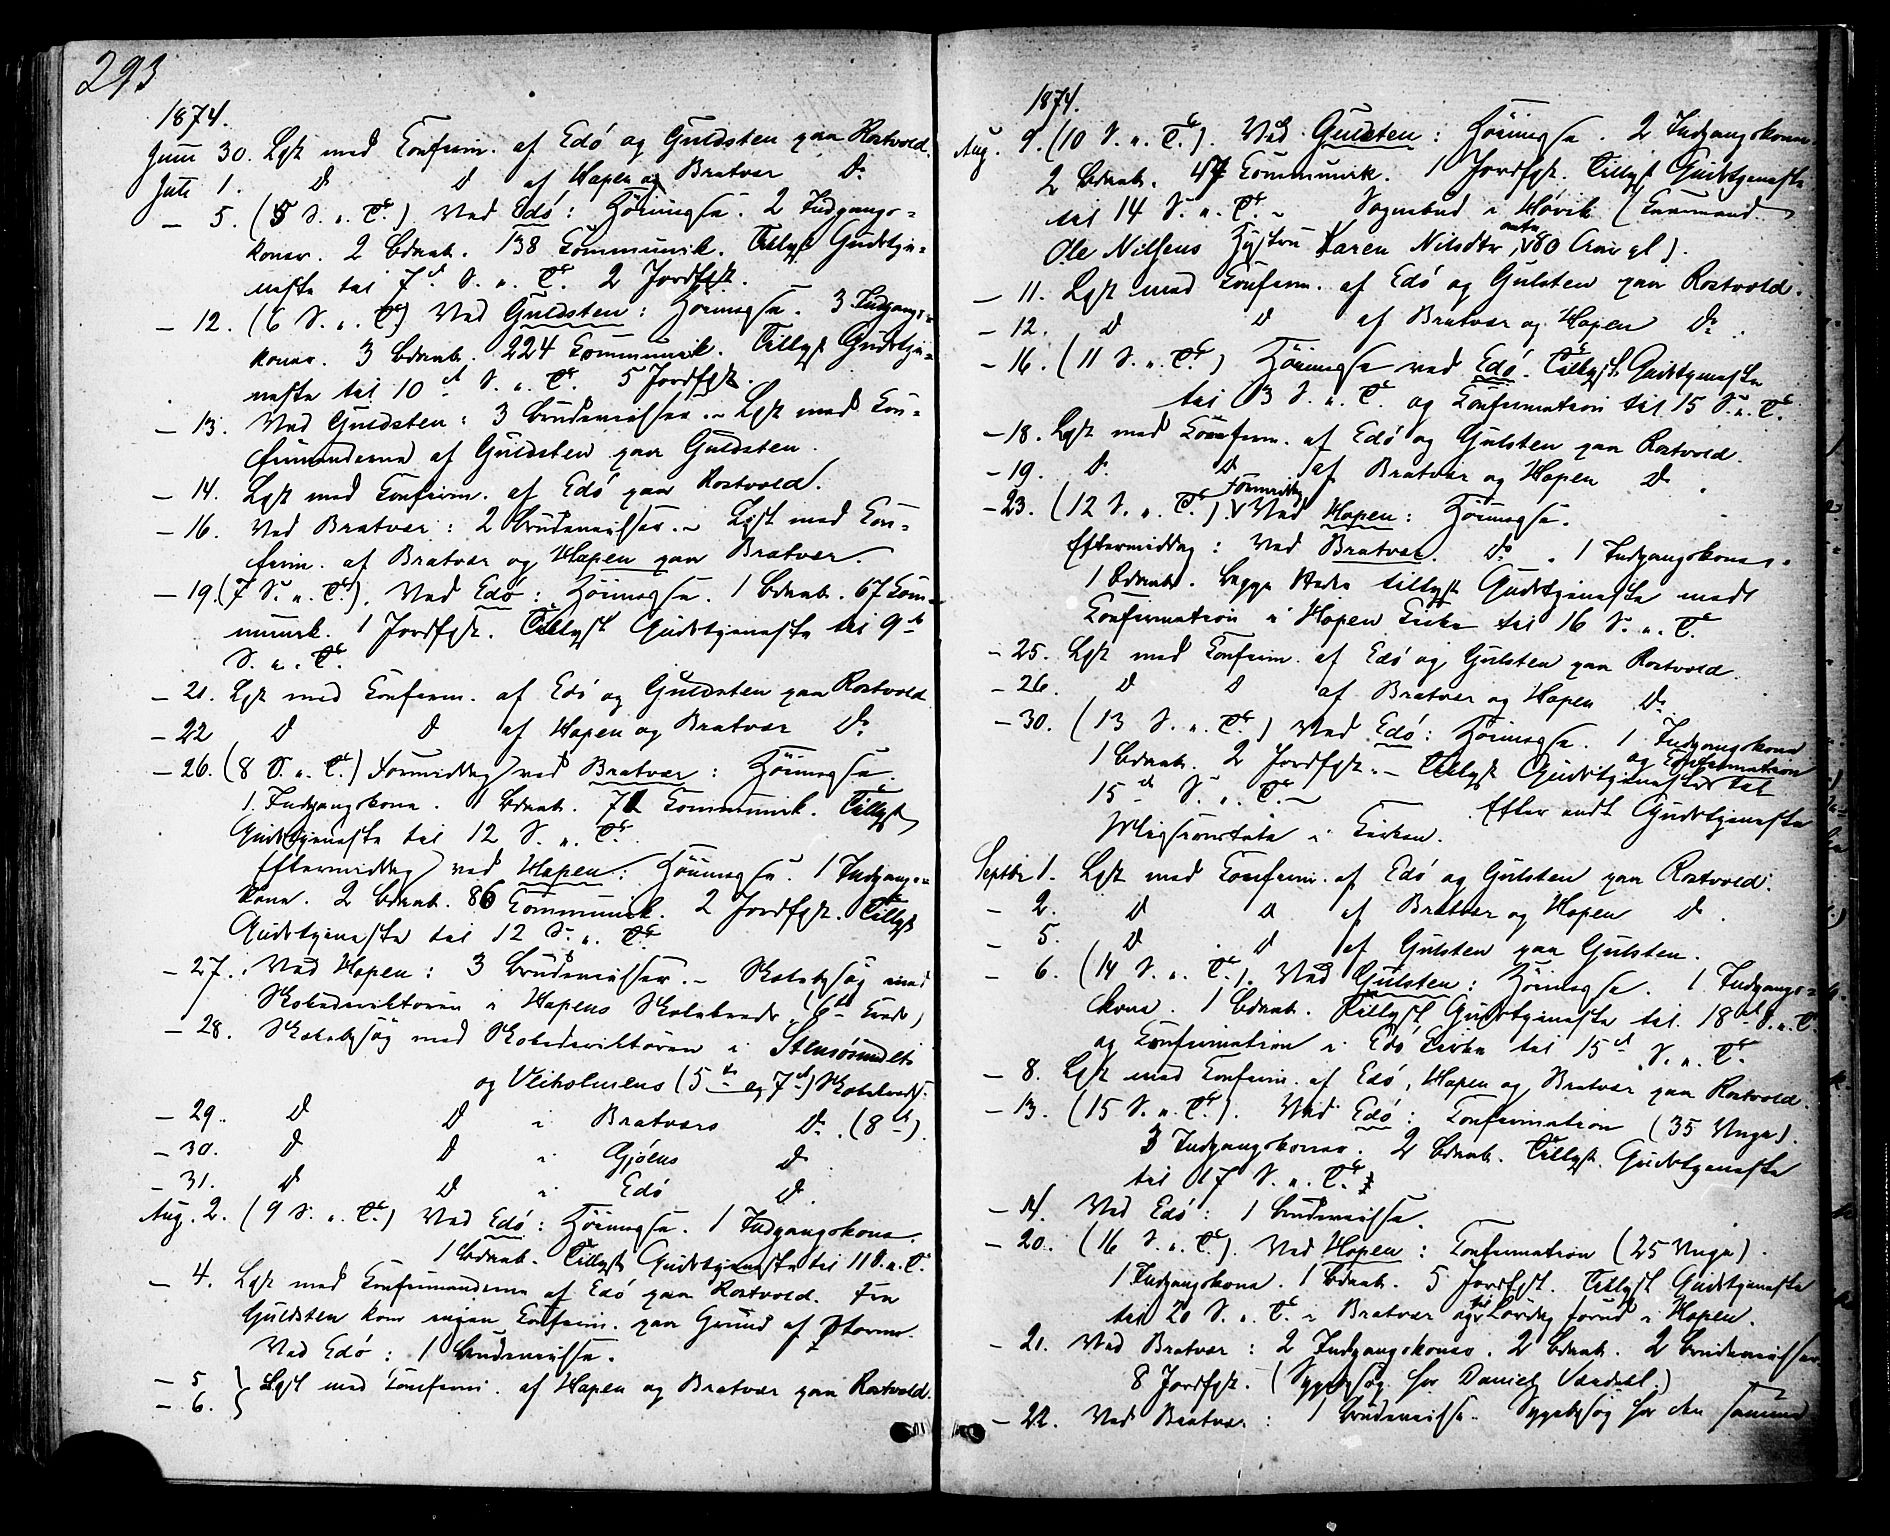 293
1874.
Juni 30. Læst med Confirm. af Edö og Guldsten paa Rostvold.
Juli 1. D D af Hopen og Bratvær Do
— 5. (5 S. e. Tr.) Ved Edö: Höimesse. 2 Indgangs=
koner. 2 Börneb. 138 Communik. Tillyst Gudstje=
neste til 7de S. e. Tr. 2 Jordfæst.
— 12. (6 S. e. Tr.) Ved Guldsten: Höimesse. 3 Indgangs=
koner. 3 Börneb. 224 Communik. Tillyst Gudstje=
neste til 10de S. e. Tr. 5 Jordfæst.
— 13. Ved Guldsten: 3 Brudevielser. – Læst med Con=
firmanderne af Guldsten paa Guldsten.
— 14. Læst med Confirm. af Edö paa Rostvold.
— 16. Ved Bratvær: 2 Brudevielser. – Læst med Con=
firm. af Bratvær og Hopen paa Bratvær.
— 19. (7 S. e. Tr.). Ved Edö: Höimesse. 1 Börneb. 67 Com=
munik. 1 Jordfæst. Tillyst Gudstjeneste til 9de
S. e. Tr.
— 21. Læst med Confirm. af Edö og Guldsten paa Rostvold
— 22 D D af Hopen og Bratvær Do
— 26. (8 S. e. Tr.) Formiddag ved Bratvær: Höimesse.
1 Indgangskone. 1 Börneb. 71 Communik. Tillyst
Gudstjeneste til 12 S. e. Tr.
Eftermiddag ved Hopen: Höimesse. 1 Indgangs=
kone. 2 Börneb. 86 Communik. 2 Jordfæst. Tillyst
Gudstjeneste til 12 S. e. Tr.
— 27. Ved Hopen: 3 Brudevielser. – Skolebesög med
Skoledirektören i Hopens Skolekreds (6te Kreds)
— 28. Skolebesög med Skoledirektören i Stensösundets
og Veiholmens (5te og 7de) Skolekreds.
— 29. D D i Bratværs Do (8de).
— 30. D D i Gjöens Do
— 31. D D i Edö D.
Aug. 2. (9 S. e. Tr.) Ved Edö: Höimesse. 1 Indgangskone.
1 Börneb. Tillyst Gudstjeneste til 11 S. e. Tr.
— 4. Læst med Confirmanderne af Edö paa Rostvold. Fra
Guldsten kom ingen Confirm. paa Grund af Storm.
Ved Edö: 1 Brudevielse.
— 5
— 6. } Læst med Confirm. af Hopen og Bratvær paa Rostvold.
1874.
Aug. 9. (10 S. e. Tr.). Ved Gulsten: Höimesse. 2 Indgangskoner
2 Börneb. 47 Communik. 1 Jordfæst. Tillyst Gudstjeneste
til 14 S. e. Tr. – Sognebud i Hövik (Enemand
Ole Nilsens Hustru Karen Nilsdtr, 80 Aar gl).
— 11. Læst med Confirm. af Edö og Gulsten paa Rostvold.
— 12. D D af Bratvær og Hopen Do.
— 16. (11 S. e. Tr.) Höimesse ved Edö. Tillyst Gudstjeneste
til 13 S. e. Tr. og Confirmation til 15 S. e. Tr.
— 18. Læst med Confirm. af Edö og Gulsten paa Rostvold.
— 19. D. D af Bratvær og Hopen Do.
— 23. (12 S. e. Tr.). Formiddag Ved Hopen: Höimesse.
Eftermiddag: Ved Bratvær. Do. 1 Indgangskone.
1 Börneb. Begge Steder tillyst Gudstjeneste med
Confirmation i Hopen Kirke til 16 S. e. Tr.
— 25. Læst med Confirm. af Edö og Gulsten paa Rostvold.
— 26. D D af Bratvær og Hopen Do.
— 30. (13 S. e. Tr.) Ved Edö: Höimesse. 1 Indgangskone
1 Börneb. 2 Jordfæst. – Tillyst Gudstjeneste og Confirmation til
15de S. e. Tr. – Efter endt Gudstjeneste
i Kirken.
Septbr 1. Læst med Confirm. af Edö og Gulsten paa Rostvold.
— 2. D D af Bratvær og Hopen D.
— 5. D D af Gulsten paa Gulsten.
— 6. (14 S. e. Tr.). Ved Gulsten: Höimesse. 1 Indgangs=
kone. 1 Börneb. Tillyst Gudstjeneste til 18de S. e. Tr
og Confirmation i Edö Kirke til 15de S. e. Tr.
— 8. Læst med Confirm. af Edö, Hopen og Bratvær paa Rostvold.
— 13. (15 S. e. Tr.). Ved Edö: Confirmation (35 Unge).
3 Indgangskoner. 2 Börneb. Tillyst Gudstjeneste
til 17 S. e. Tr.
— 14. Ved Edö: 1 Brudevielse.
— 20. (16 S. e. Tr.). Ved Hopen: Confirmation (25 Unge).
1 Indgangskone. 1 Börneb. 5 Jordfæst. Tillyst Gudstjeneste
til 20 S. e. Tr. i Bratvær og til Lördag forud i Hopen.
— 21. Ved Bratvær: 2 Indgangskoner. 2 Börneb. 2 Brudevielser
8 Jordfæst. (Sygebesög hos Daniel
— 22. Ved Bratvær: 1 Brudevielse. Sygebesög hos den samme